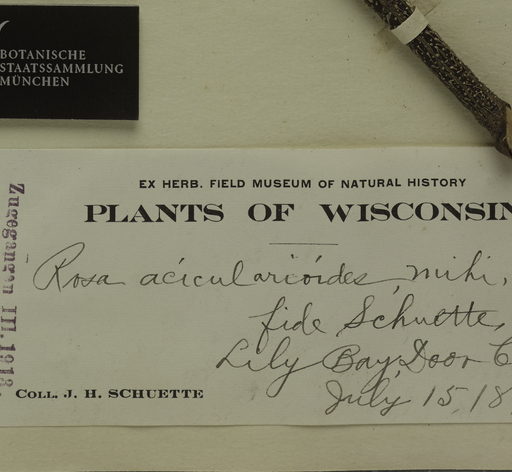 BOTANISCHE
STAATSSAMMLUNG
MÜNCHEN
Zugegangen III.1913.
EX HERB. FIELD MUSEUM OF NATURAL HISTORY
PLANTS OF WISCONSIN
Rosa acicularioides, mihi,
fide Schuette,
Lily Bay, Door C
July 15, 18
COLL. J. H. SCHUETTE